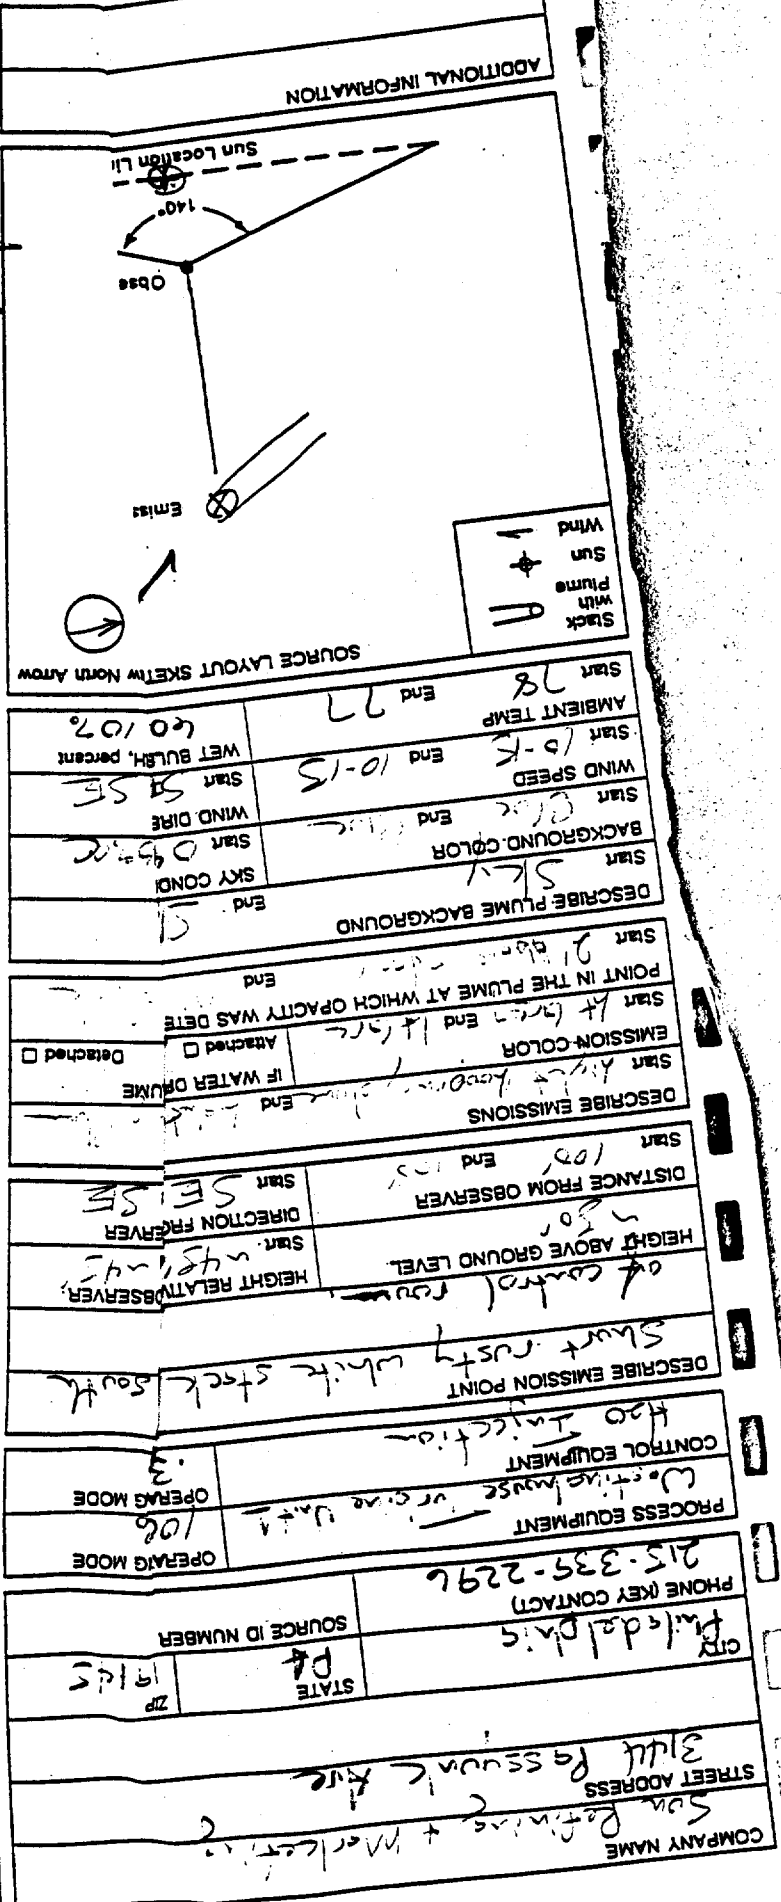 COMPANY NAME
Sun Refining + Marketing
STREET ADDRESS
3144 Passyunk Ave
CITY
Philadelphia
STATE
PA
ZIP
19145
PHONE (KEY CONTACT)
215-339-2296
SOURCE ID NUMBER
PROCESS EQUIPMENT
Westinghouse Turbine Unit 1
OPERAG MODE
106
CONTROL EQUIPMENT
H2O Injection
OPERAG MODE
.3
DESCRIBE EMISSION POINT
Short rusty white stack South
of control room
HEIGHT ABOVE GROUND LEVEL
~50'
HEIGHT RELATIV OBSERVER
Start ~45' ~45'
DISTANCE FROM OBSERVER
Start 100' End
DIRECTION FR OBSERVER
Start SE SE
DESCRIBE EMISSIONS
Start light End
EMISSION COLOR
Start lt End lt
IF WATER D PLUME
Attached □ Detached □
POINT IN THE PLUME AT WHICH OPACITY WAS DETE
Start 2' above End
DESCRIBE PLUME BACKGROUND
Start Sky End
BACKGROUND COLOR
Start Blue End Blue
SKY COND
Start
WIND SPEED
Start 10-15 End 10-15
WIND DIRE
Start SE SE
AMBIENT TEMP
Start 78 End 77
WET BUL RH, percent
60
SOURCE LAYOUT SKET w North Arrow
Stack
with
Plume
Sun
Wind
Emiss
Obse
140°
Sun Location Li
ADDITIONAL INFORMATION